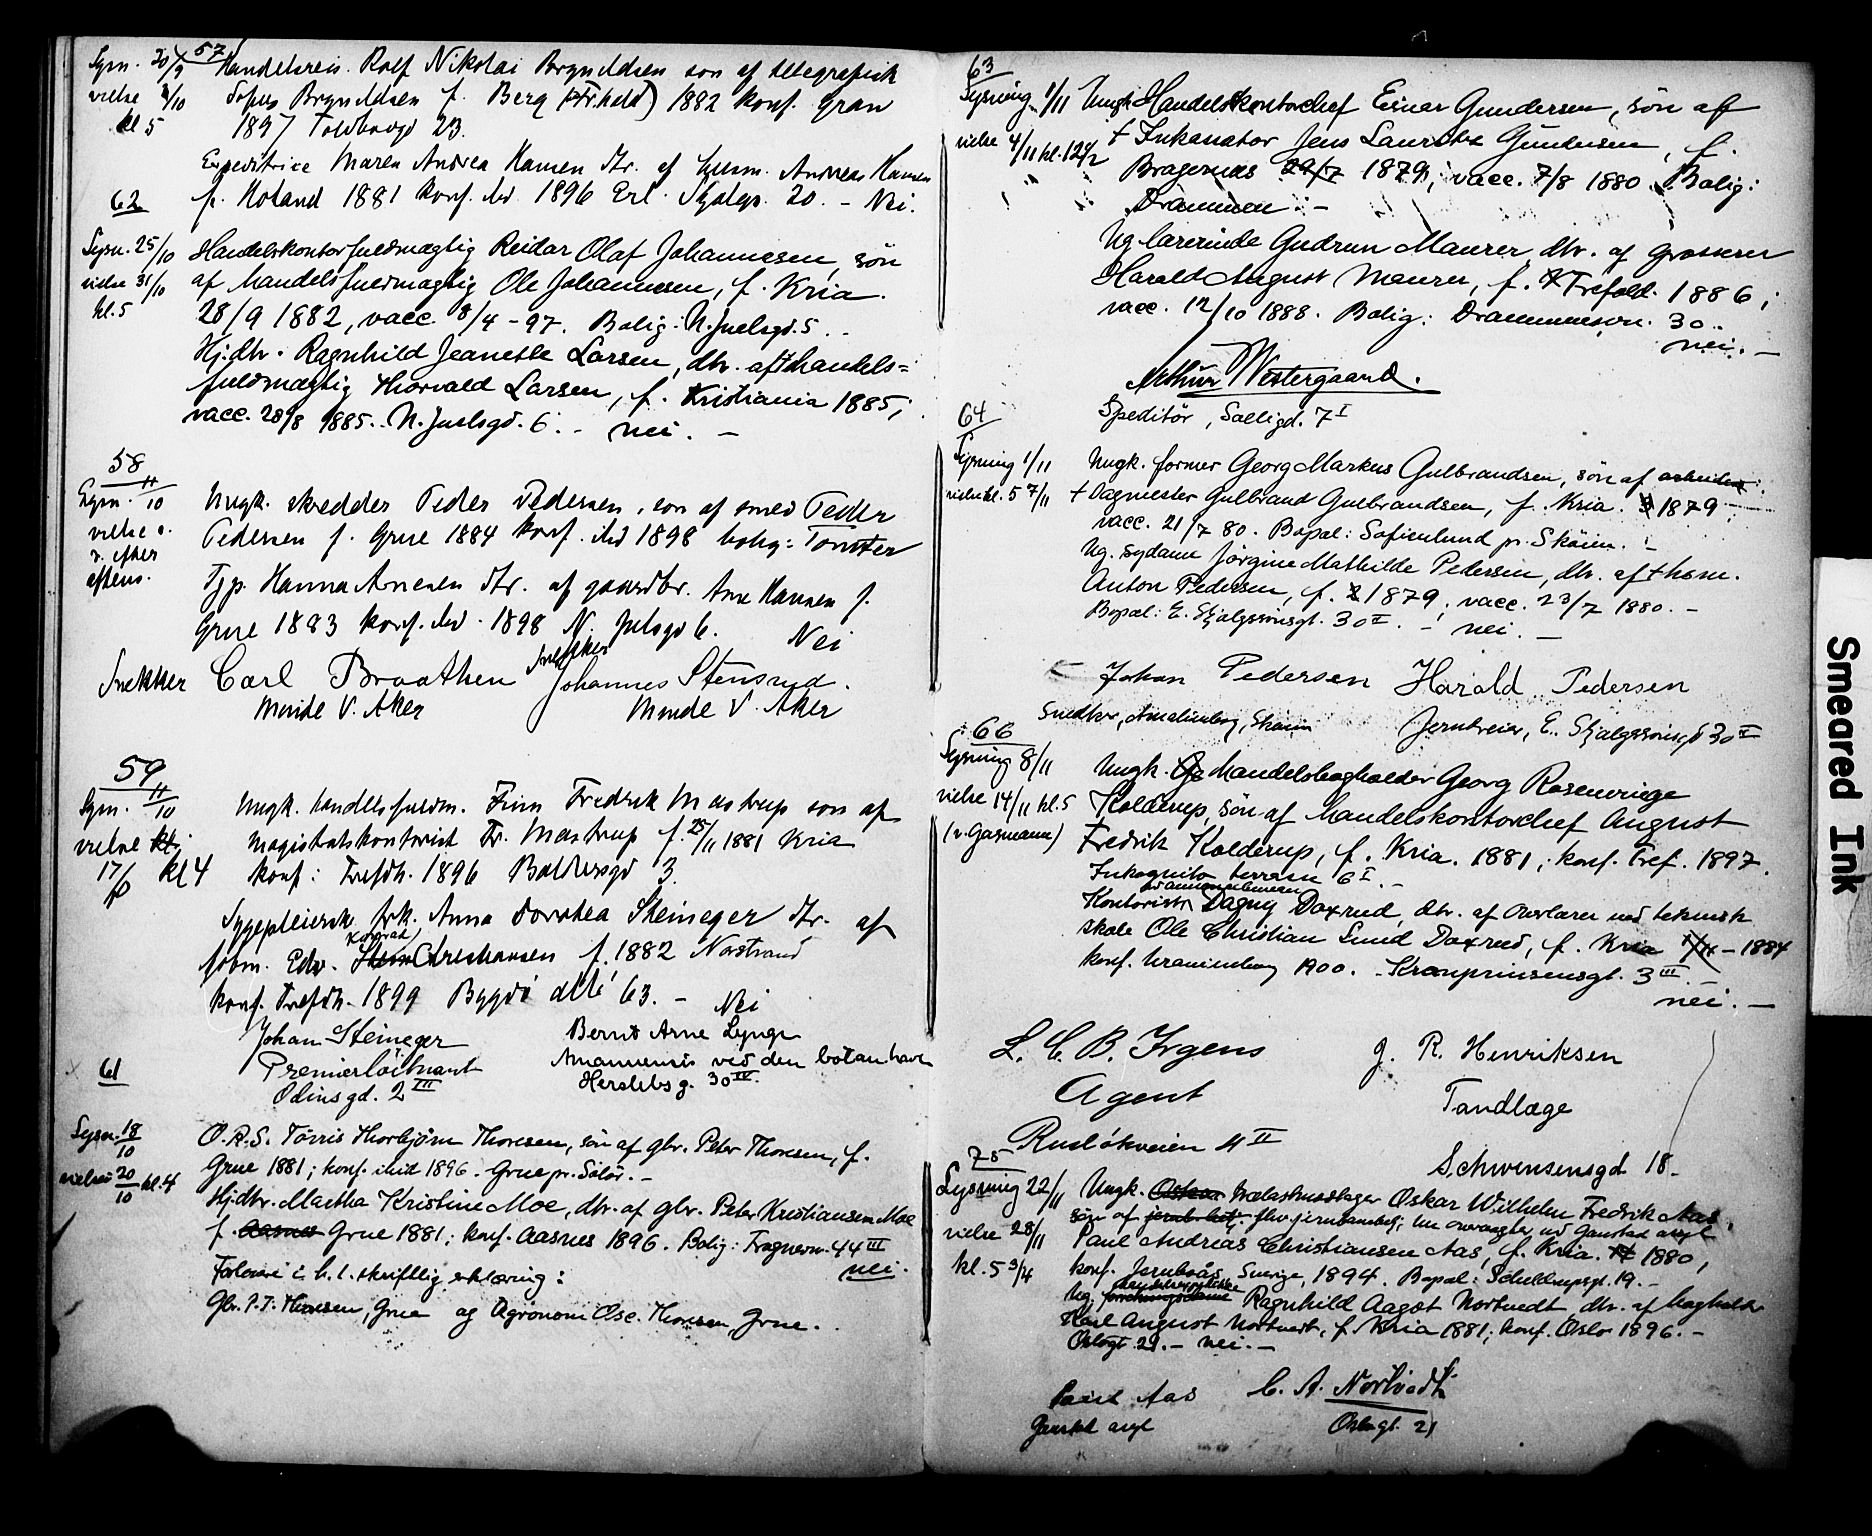 57
Lysn. 20/9 Handelsreis. Rolf Nikolai Brynildsen søn af telegrafisk
vielse 3/10 Sofus Brynildsen f. Berg (Fr.hald) 1882 konf. Gran
kl 5 1897 Toldbodgd 23.
Expeditrice Maren Andrea Hansen dtr. af Andreas Hansen
f. Høland 1881 konf. ibd 1896 Erl. Skjalgs. 20. – Nei.
62
Lysn. 25/10 Handelskontorfuldmægtig Reidar Olaf Johannesen, søn
vielse 31/10 af handelsfuldmægtig Ole Johannesen, f. Kria.
kl. 5 28/9 1882, vacc. 8/4 - 97. Bolig: N. Juelsgd. 5. –
Hj.dtr. Ragnhild Jeanette Larsen, dtr. af † handels=
fuldmægtig Thorvald Larsen, f. Kristiania 1885;
vacc. 28/8 1885. N. Juelsgd. 6. – nei. –
58
Lysn. 11/10 Ungk. skredder Peder Pedersen, søn af smed Peder
vielse
Pedersen f. Grue 1884 konf. ibd 1898 bolig: Tomter
s. efter
aftens. Tjp. Hanna Arnesen dtr. af gaardbr. Arne Hansen f.
Grue 1883 konf. ibd. 1898 N. Julsgd 6. Nei
Snekker Carl Braathen Snekker Johannes Stensrud.
Minde V. Aker Minde V. Aker
59
Lysn. 11/10 Ungk. handelsfuldm. Finn Fredrik Mastrup søn af
vielse kl. magistratskontorist Fr. Mastrup f. 25/11 1881 Kria
17/10 kl 4 konf: Trefdh. 1896 Baldersgd 3.
Sygepleierske frk. Anna Dorothea Steineger dtr. af
Konrad
fobm. Edv. f. 1882 Nordstrand
konf. Trefdh. 1899 Bygdø allé 63. – Nei
Johan Steineger Bernt Arne Lynge
Premierløitnant Amanuensis ved den botan have
Odinsgd. 2 III Herslebsg. 30 IV.
61
Lysn. 18/10 O.R.S. Tørris Thorbjørn Thoresen, søn af gbr. Peter Thoresen, f.
vielse 20/10 kl. 4 Grue 1881; konf. ibid 1896. Grue pr. Solør. –
Hj.dtr. Martha Kristine Moe, dtr. af gbr. Peter Kristiansen Moe
f. Aasnes Grue 1881; konf. Aasnes 1896. Bolig: Frognervn. 44 III
nei.
Forlovere i h. t. skriftlig erklæring:
Gbr. P. T. Thoresen, Grue og Agronom Osc. Thoresen, Grue.
63
Lysning 1/11 Ungk. Handelskontorchef Einar Gundersen, søn af
vielse 4/11 kl. 12 1/2 † Inkassator Jens Lauritz Gundersen, f.
Bragernæs 29/7 1879; vacc. 7/8 1880. Bolig:
Drammen. –
Ug. lærerinde Gudrun Maurer, dtr. af grosserer
Harald August Maurer, f. Trefold. 1886;
vacc. 12/10 1888. Bolig: Drammensvn. 30. –
nei. –
Arthur Westergaard.
Speditør, Solligd. 7 I
64
Lysning 1/11 Ungk. former Georg Markus Gulbrandsen, søn af arbeider
vielse kl. 5 7/11 † Dagmester Gulbrand Gulbrandsen, f. Kria. 1879;
vacc. 21/7 80. Bopæl: Sofienlund pr. Skøien. –
Ug. sydame Jørgine Mathilde Pedersen, dtr. af † hsm.
Anton Pedersen, f. 1879; vacc. 23/7 1880. –
Bopæl: E. Skjalgssønsgt. 30 II. – nei. –
Johan Pedersen Harald Pedersen
Snedker, Amalienborg, Skøien Jerndreier, E. Skjalgssønsgd 30 II
66
Lysning 8/11 Ungk. Handelsbogholder Georg Rosenvinge
vielse 14/11 kl. 5 Kolderup, søn af Handelskontorchef August
(v. Gasmann) Fredrik Kolderup, f. Kria. 1881; konf. Tref. 1897.
Inkognito terrasse 6 I. –
Kontorist Dagny Daxrud, dtr. af Overlærer ved teknisk
skole Ole Christian Lund Daxrud, f. Kria 1/4 – 1884
konf. Uranienborg 1900. – Kronprinsensgt. 3 III.
nei. –
L. C. B. Irgens J. R. Henriksen
Agent Tandlæge
Rusløkveien 4 II Schwensensgd 18.
75
Lysning 22/11 Ungk. Oskar Oskar Wilhelm Fredrik Aas,
vielse 28/11 søn af
Paul Andreas Christiansen Aas, f. Kria. 1880,
kl. 5 3/4 konf. Jernboås, Sverige, 1894. Bopæl: Schuldtzpsgt. 19. –
Ug. Ragnhild Aagot Nortvedt, dtr. af bogholder
Karl August Nortvedt, f. Kria 1881; konf. Oslo 1896. –
Oslogt. 21. – nei. –
Paul Aas C. A. Nortvedt
Gaustad asyl Oslogt. 21
Smeared Ink